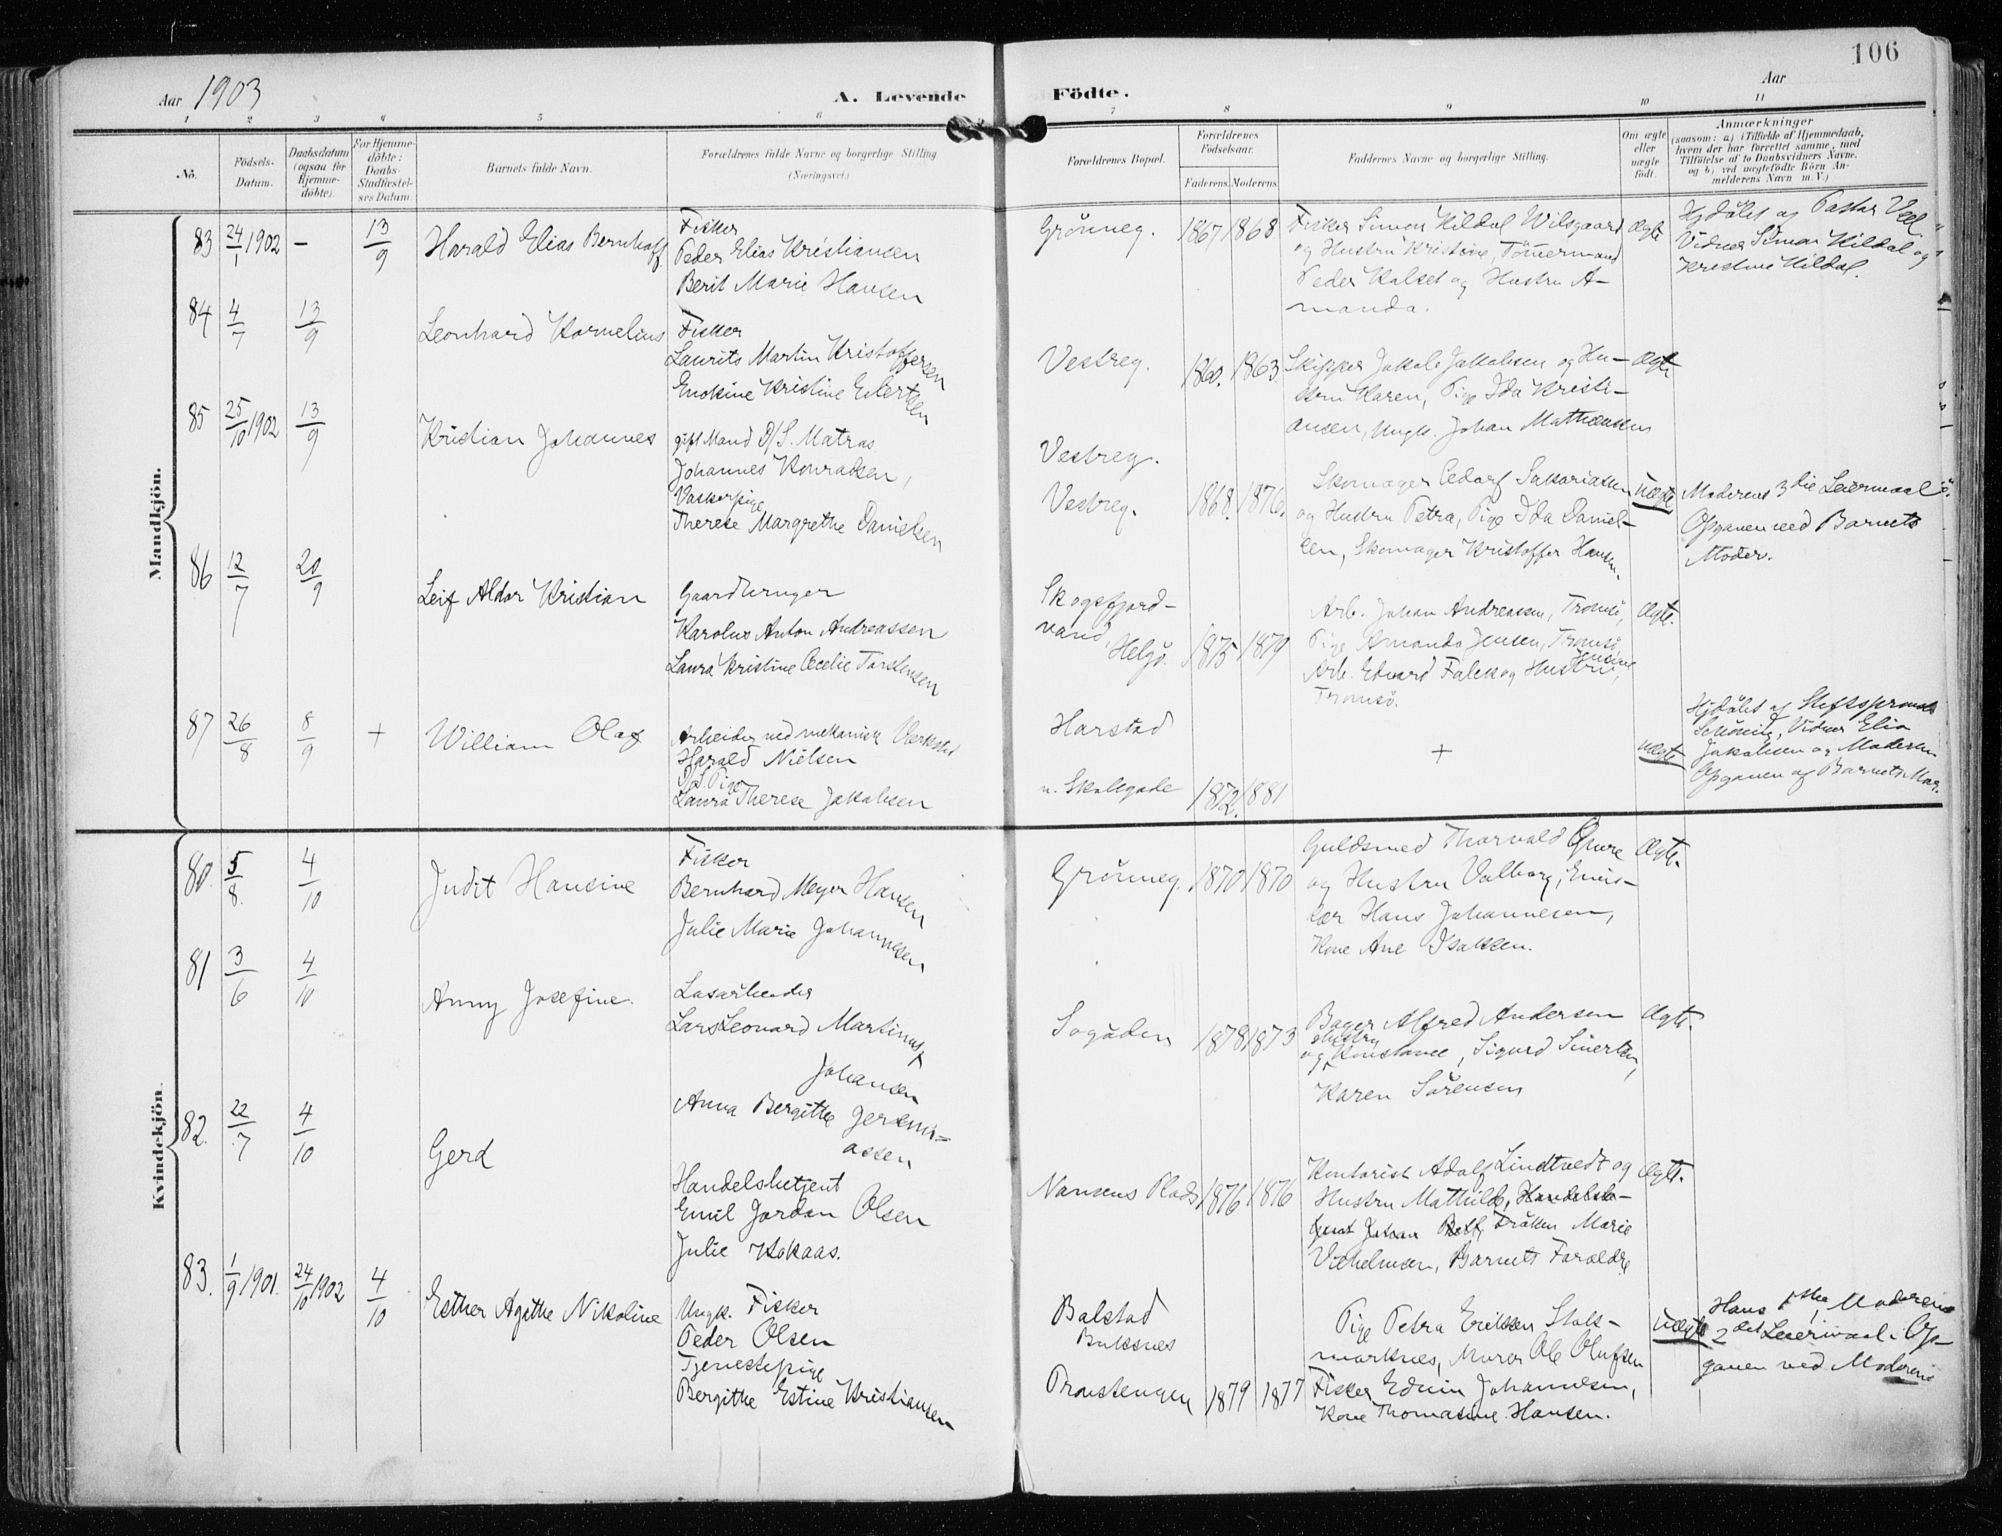 106
Aar 1903
A. Levende Födte.
Aar
1 2 3 4 5 6 7 8 9 10 11
No.
Födsels-
Datum.
Daabsdatum
(ogsaa for
Hjemme-
döbte).
For Hjemme-
döbte:
Daabs-
Stadfæstel-
ses Datum.
Barnets fulde Navn.
Forældrenes fulde Navne og borgerlige Stilling
(Næringsvei.)
Forældrenes Bopæl.
Forældrenes
Födselsaar.
Faderens. Moderens.
Faddernes Navne og borgerlige Stilling.
Om ægte
eller
uægte
födt.
Anmærkninger
(saasom: a) i Tilfælde af Hjemmedaab,
hvem der har forrettet samme, med
Tilföielse af to Daabsvidners Navne.
og b) ved uægtefödte Börn An-
melderens Navn m. V.)
Mandkjön.
83 24/1 1902 – 13/9 Harald Elias Bernhoff.
Fisker
Peder Elias Kristiansen
Berit Marie Hansen
Grønneg. 1867 1868
Fisker Simon Kildal Wilsgaard
og Hustru Kristine, Tömermand
Peder Kalset og Hustru A-
manda.
Ægte
Hjdöbt af Pastor
Vidner Simon Kildal og
Kristine Kildal.
84 4/7 13/9 Leonhard Kornelius
Fisker
Laurits Martin Kristoffersen
Enokine Kristine Eilertsen
Vestreg. 1860. 1863.
Skipper Jakob Jakobsen og Hu-
stru Karen, Pige Ida Kristi-
ansen, Ungk. Johan Mathiassen
Ægte
85 25/10 1902 13/9 Kristian Johannes
gift Mand D/S. Matros
Johannes Konradsen,
Vaskerpige
Therese Margrethe Danielsen
Vestreg.
Vestreg. 1868. 1876.
Skomager Sakariassen
og Hustru Petra, Pige Ida Daniel-
sen, Skomager Kristoffer Hansen.
Uægte
Moderens 3die Leiermaal
Opgaven ved Barnets
Moder.
86 12/7 20/9 Leif Aldor Kristian
Gaardbruger
Karolus Anton Andreassen
Laura Kristine Cecelie Torstensen
Skogsfjord-
vand, Helgö. 1875 1879
Arb. Johan Andreassen, Tromsö,
Pige Amanda Jensen, Tromsö,
Arb. Edvard Falck og Hustru Jensine,
Tromsö.
Ægte.
87 26/8 8/9 + William Olaf
Arbeider ved mekanisk Værksted
Harald Nielsen
D/S. Pige
Laura Therese Jakobsen
Harstad
n. Skolegade 1872. 1881
+
Uægte
Hjdöbt af Stiftsprovst
Vidner Elia
Jakobsen og Moderen
Opgaven af Barnets Mor.
Kvindekjön.
80. 5/8. 4/10 Judit Hansine
Fisker
Bernhard Meyer Hansen
Julie Marie Johannesen
Grönneg. 1870 1870
Guldsmed Thorvald
og Hustru Valborg, Enis-
sær Hans Johannesen,
Kone Ane Isaksen.
Ægte.
81 3/6 4/10 Anny Josefine.
Løsarbeider
Lars Leonard Martinus
Johansen
Anna Bergitte Jeremi-
assen
Sogaden 1878 1873
Bager Alfred Andersen
og Hustru Konstance, Sigurd Sivertsen,
Karen Sørensen
Ægte.
82. 22/7 4/10 Gerd
Handelsbetjent
Emil Jordan Olsen
Julie Hokaas.
Nansens Plads 1876 1876
Kontorist Adolf Lindtvedt og
Hustru Mathilde, Handelsbe-
tjent Johan Fröken Marie
Vichelmsen, Barnets Forældre
Ægte.
83. 1/9 1901. 24/10 1902 4/10 Esther Agathe Nikoline
Ungk. Fisker
Peder Olsen
Tjenestepige
Bergitte Estine Kristiansen
Balstad
Buksnes
Provstengen 1879 1877
Pige Petra Eriksen Stok-
marknes, Murer Ole Olufsen
Fisker Edvin Johannesen,
Kone Thomasine Hansen.
Uægte
Hans 1ste, Moderens
2det Leiermaal. Op-
gaven ved Moderen